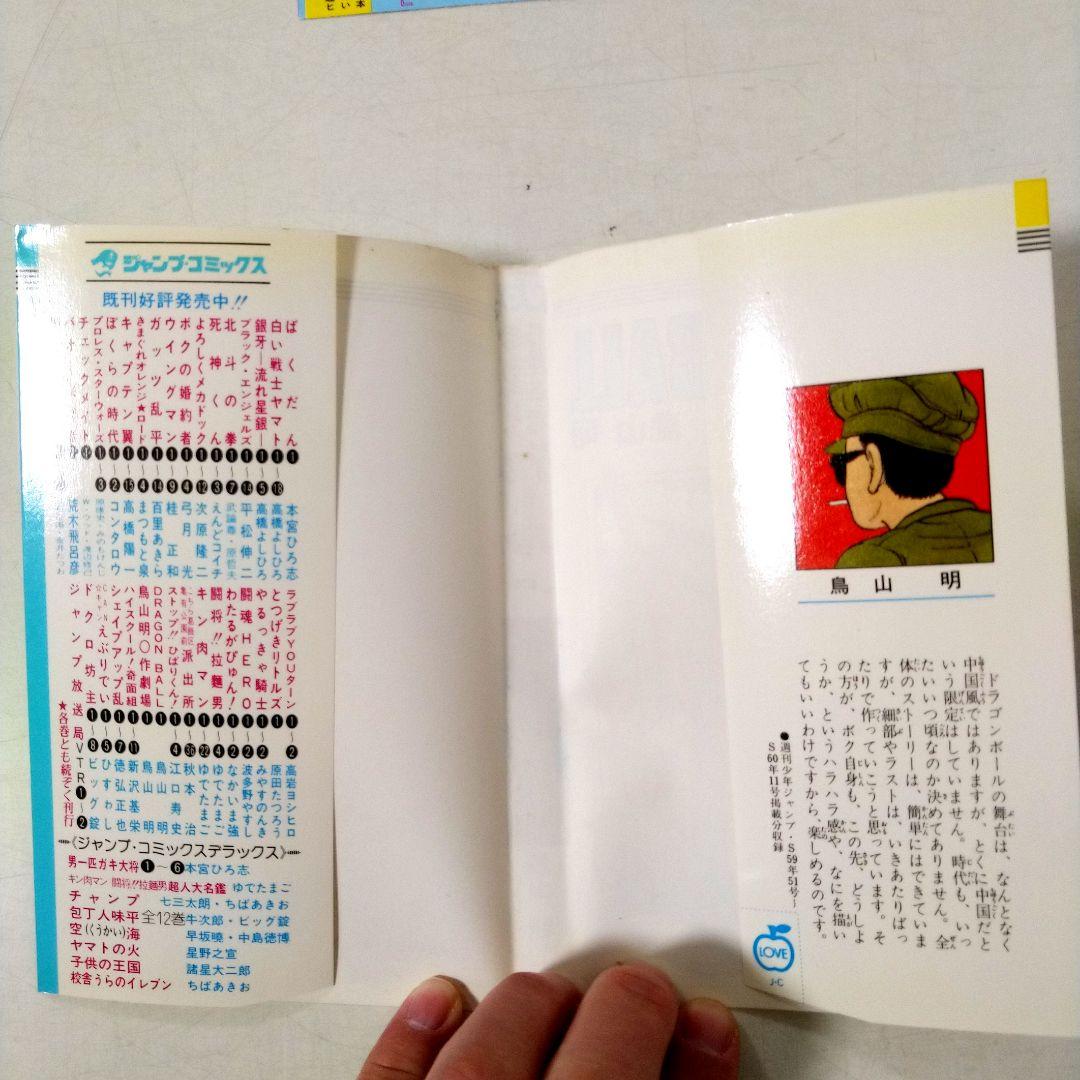 ジャンプ・コミックス
既刊好評発売中!!
ばくだん ❶ 本宮ひろ志
白い戦士ヤマト ❶〜⓲ 高橋よしひろ
銀牙―流れ星銀― ❶〜❺ 高橋よしひろ
ブラック・エンジェルズ ❶〜⓮ 平松伸二
北斗の拳 ❶〜❼ 武論尊・原哲夫
死神くん ❶〜❸ えんどコイチ
よろしくメカドック ❶〜⓬ 次原隆二
ボクの婚約者 ❶〜❹ 弓月光
ウイングマン ❶〜❾ 桂正和
ガッツ乱平 ❶〜⓮ 百里あきら
きまぐれオレンジ★ロード ❶〜❹ まつもと泉
キャプテン翼 ❶〜⓯ 高橋陽一
ぼくらの時代 ❶〜❷ コンタロウ
プロレス・スターウォーズ ❶〜❸
荒木飛呂彦
ラブラブYOUターン ❶〜❷ 高岩ヨシヒロ
とつげきリトルズ ❶
やるっきゃ騎士 ❶〜❷ みやすのんき
闘魂HERO ❶〜❷
わたるがぴゅん! ❶〜❷ なかいま強
闘将!!拉麵男 ❶〜❹ ゆでたまご
キン肉マン ❶〜㉒ ゆでたまご
こちら葛飾区亀有公園前派出所 ❶〜㊱ 秋本治
ストップ!!ひばりくん! ❶〜❹ 江口寿史
DRAGON BALL ❶ 鳥山明
鳥山明○作劇場 ❶ 鳥山明
ハイスクール!奇面組 ❶〜⓫ 新沢基栄
シェイプアップ乱 ❶〜❼ 徳弘正也
えぶりでい ❶〜❺
ドクロ坊主 ❶〜❽ ビッグ錠
ジャンプ放送局VTR❶〜❷
★各巻とも続ぞく刊行
《ジャンプ・コミックスデラックス》
男一匹ガキ大将❶〜❻本宮ひろ志
キン肉マン 闘将!!拉麵男 超人大名鑑 ゆでたまご
チャンプ 七三太朗・ちばあきお
包丁人味平 全12巻 牛次郎・ビッグ錠
空(くうかい)海 早坂暁・中島徳博
ヤマトの火 星野之宣
子供の王国 諸星大二郎
校舎うらのイレブン ちばあきお
鳥山 明
ドラゴンボールの舞台は、なんとなく
中国風ではありますが、とくに中国だと
いう限定はしていません。時代も、いっ
たいいつ頃なのか決めてありません。全
体のストーリーは、簡単にはできていま
すが、細部やラストは、いきあたりばっ
たりで作っていこうと思っています。そ
の方が、ボク自身も、この先、どうしよ
うか、というハラハラ感や、なにを描い
てもいいわけですから、楽しめるのです。
●週刊少年ジャンプ・S59年51号〜
S60年11号掲載分収録
LOVE
J·C